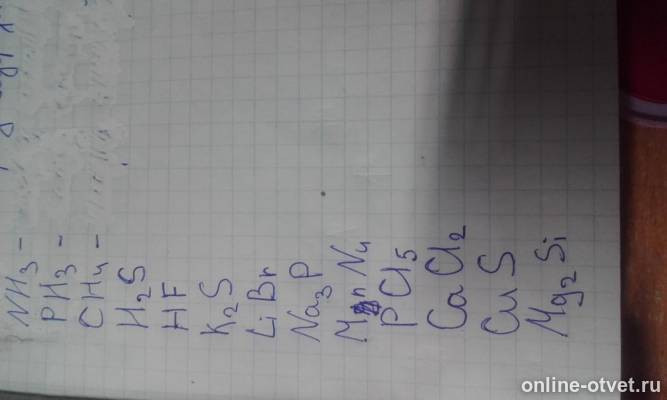 NH3 -
PH3 -
CH4 -
H2S
HF
K2S
LiBr
Na3P
Mn N4
PCl5
CaCl2
CuS
Mg2Si
online-otvet.ru